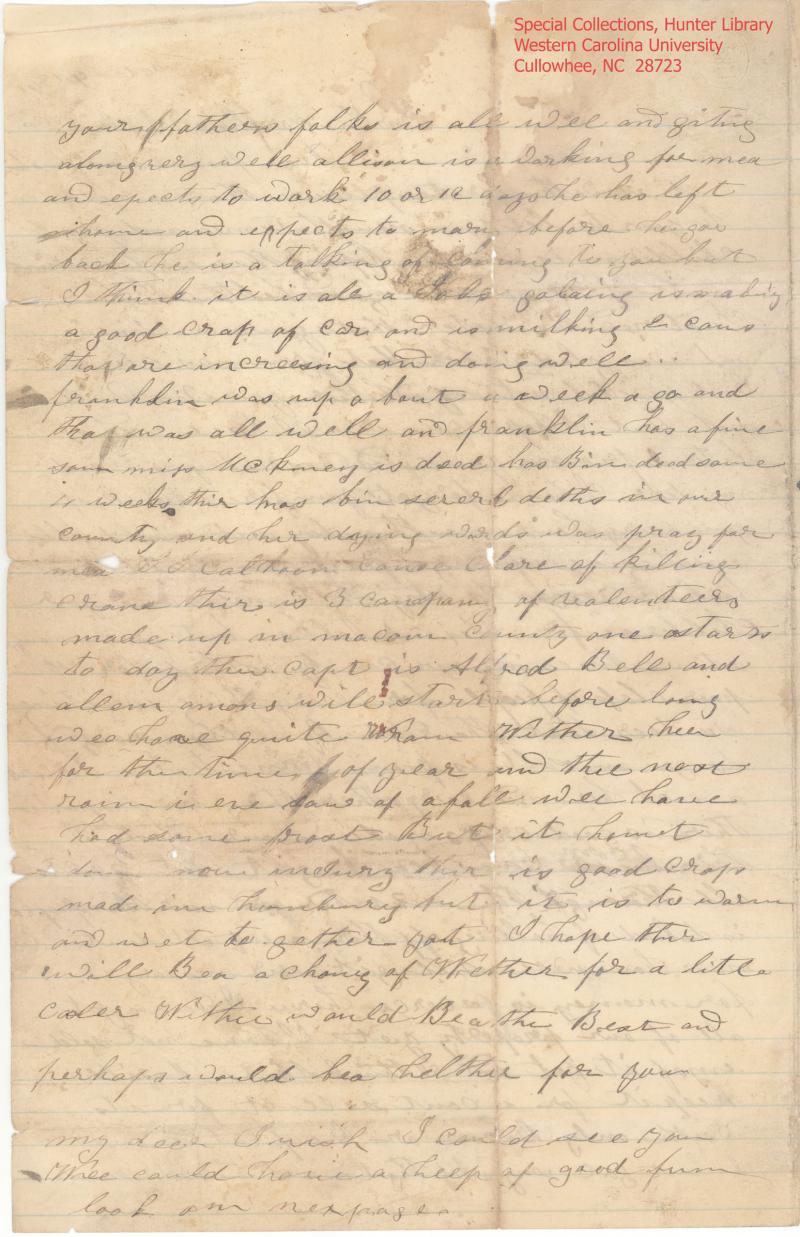 Special Collections, Hunter Library
Western Carolina University
Cullowhee, NC 28723
your fathers folks is all well and giting
along very well allison is a working for mea
and epects to work 10 or 12 days he has left
home and expects to mary before he goe
back he is a talking of coming to you but
I think it is all a Joke is making
a good crap of corn and is milking 2 cows
thay are increesing and doing well
franklin was up a bout a week a go and
thay was all well and franklin has a fine
sown miss McKiney is dead has Bin dead some
weeks thir has bin severl deths in our
county and hir dying words was pray for
mea Calhoun Clare of killing
Crane thir is 3 campany of valenteers
made up in macon county one starts
to day ther Capt is Alfred Bell and
allem amons will start before long
wee have quite Warm Wether heer
for the time of year and the most
rain i eve saw of a fall wee have
had some frost But it hant
don now indury thir is good crops
made in but it is to warm
and wet to gether yat I hope thir
will Bea a chang of Wether for a litle
coler Wether would Bea the Best and
perhaps would bea helther for you
my deer I wish I could see you
Wee could have a heep of good fun
look on nex page